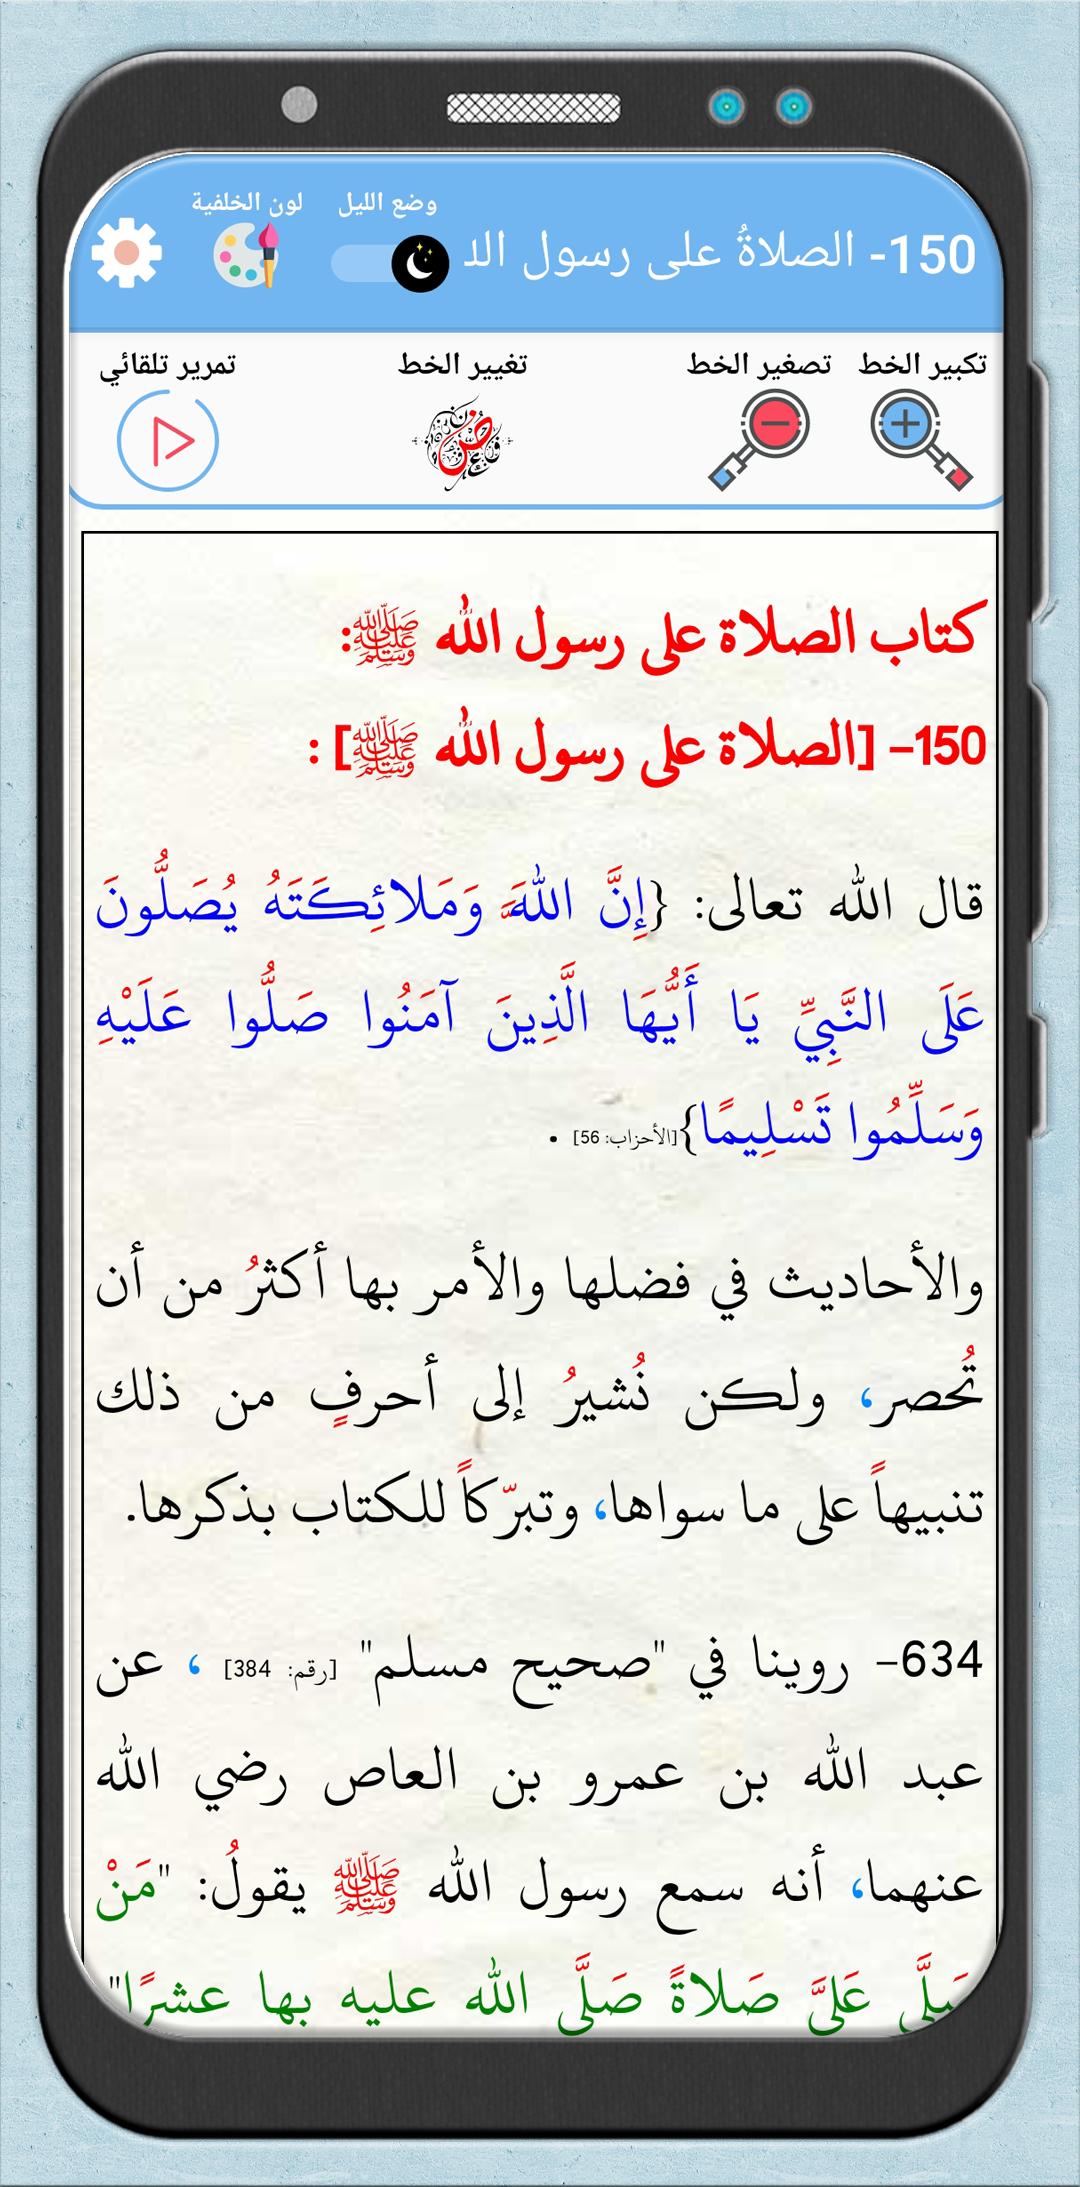 وضع الليل
لون الخلفية
150- الصلاةُ على رسول الا
تكبير الخط
تصغير الخط
تغيير الخط
تمرير تلقائي
كتاب الصلاة على رسول الله ﷺ:
150- [الصلاة على رسول الله ﷺ] :
قال الله تعالى: {إِنَّ اللهَ وَمَلائِكَتَهُ يُصَلُّونَ
عَلَى النَّبِيِّ يَا أَيُّهَا الَّذِينَ آمَنُوا صَلُّوا عَلَيْهِ
وَسَلِّمُوا تَسْلِيمًا}[الأحزاب: 56] .
والأحاديث في فضلها والأمر بها أكثرُ من أن
تُحصر، ولكن نُشيرُ إلى أحرفٍ من ذلك
تنبيهاً على ما سواها، وتبرّكاً للكتاب بذكرها.
634- روينا في "صحيح مسلم" [رقم: 384] ، عن
عبد الله بن عمرو بن العاص رضي الله
عنهما، أنه سمع رسول الله ﷺ يقولُ: "مَنْ
صَلَّى عَليَّ صَلاةً صَلَّى الله عليه بها عشرًا"